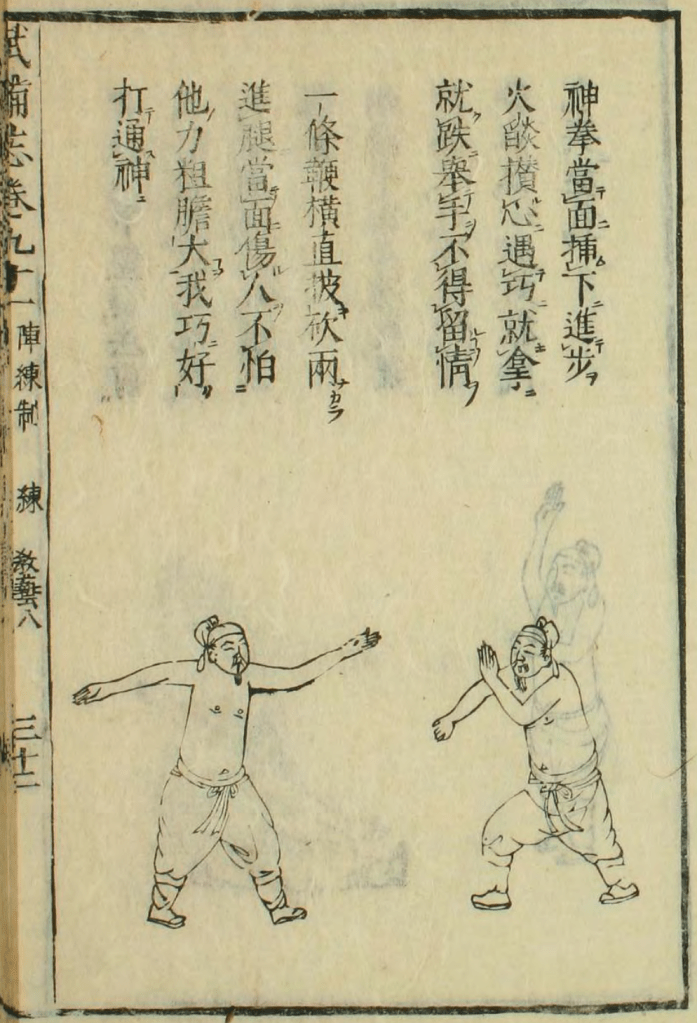 神拳當面挿下進步
火燄攅心遇巧就拿
就跌舉手不得留情
一條鞭橫直披砍兩
進腿當面傷人不怕
他力粗膽大我巧好
打通神
武備志卷九十一
陣練制
練
教藝八
三十二